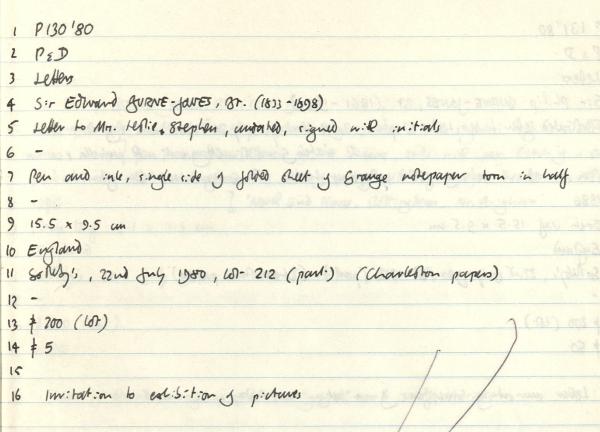 1 P130'80
2 P&D
3 Letters
4 Sir Edward BURNE-JONES, Bt. (1833-1898)
5 Letter to Mrs. Leslie Stephen, undated, signed with initials
6 -
7 Pen and ink, single side of folded sheet of Grange notepaper torn in half
8 -
9 15.5 x 9.5 cm
10 England
11 Sotheby's, 22nd July 1980, lot 212 (part) (Charleston papers)
12 -
13 £ 200 (lot)
14 £ 5
15
16 Invitation to exhibition of pictures